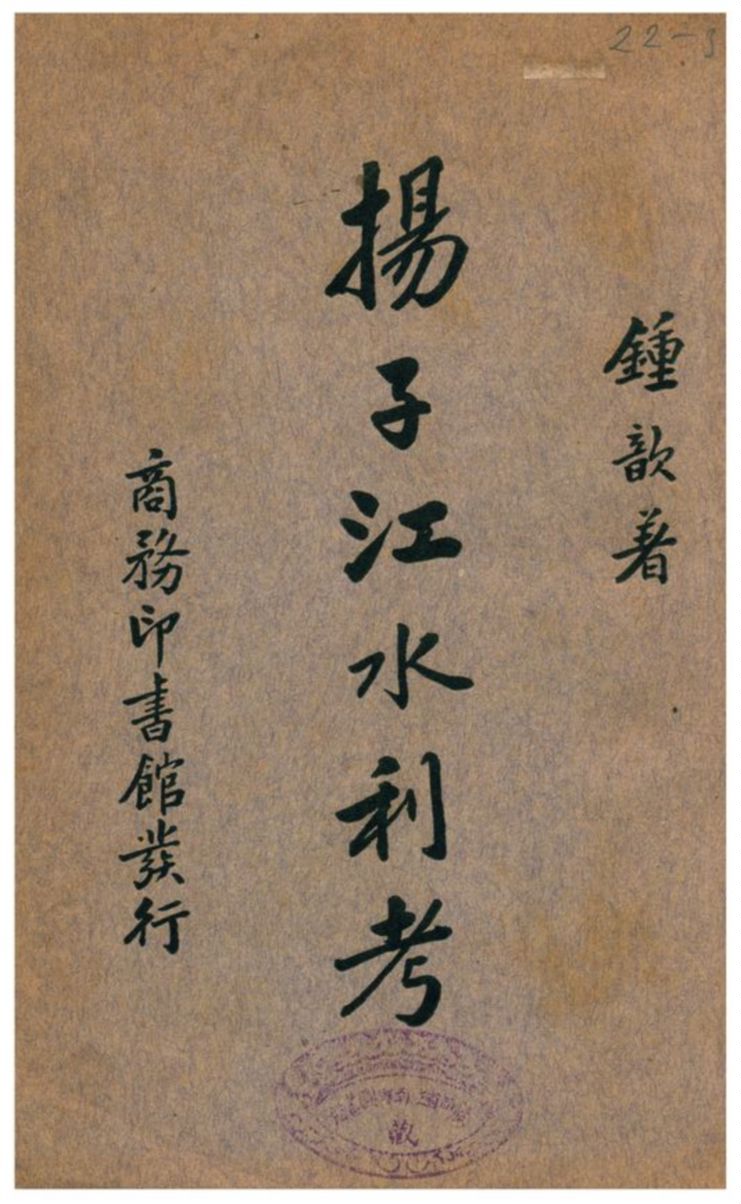 22-3
鍾歆著
揚子江水利考
商務印書館發行